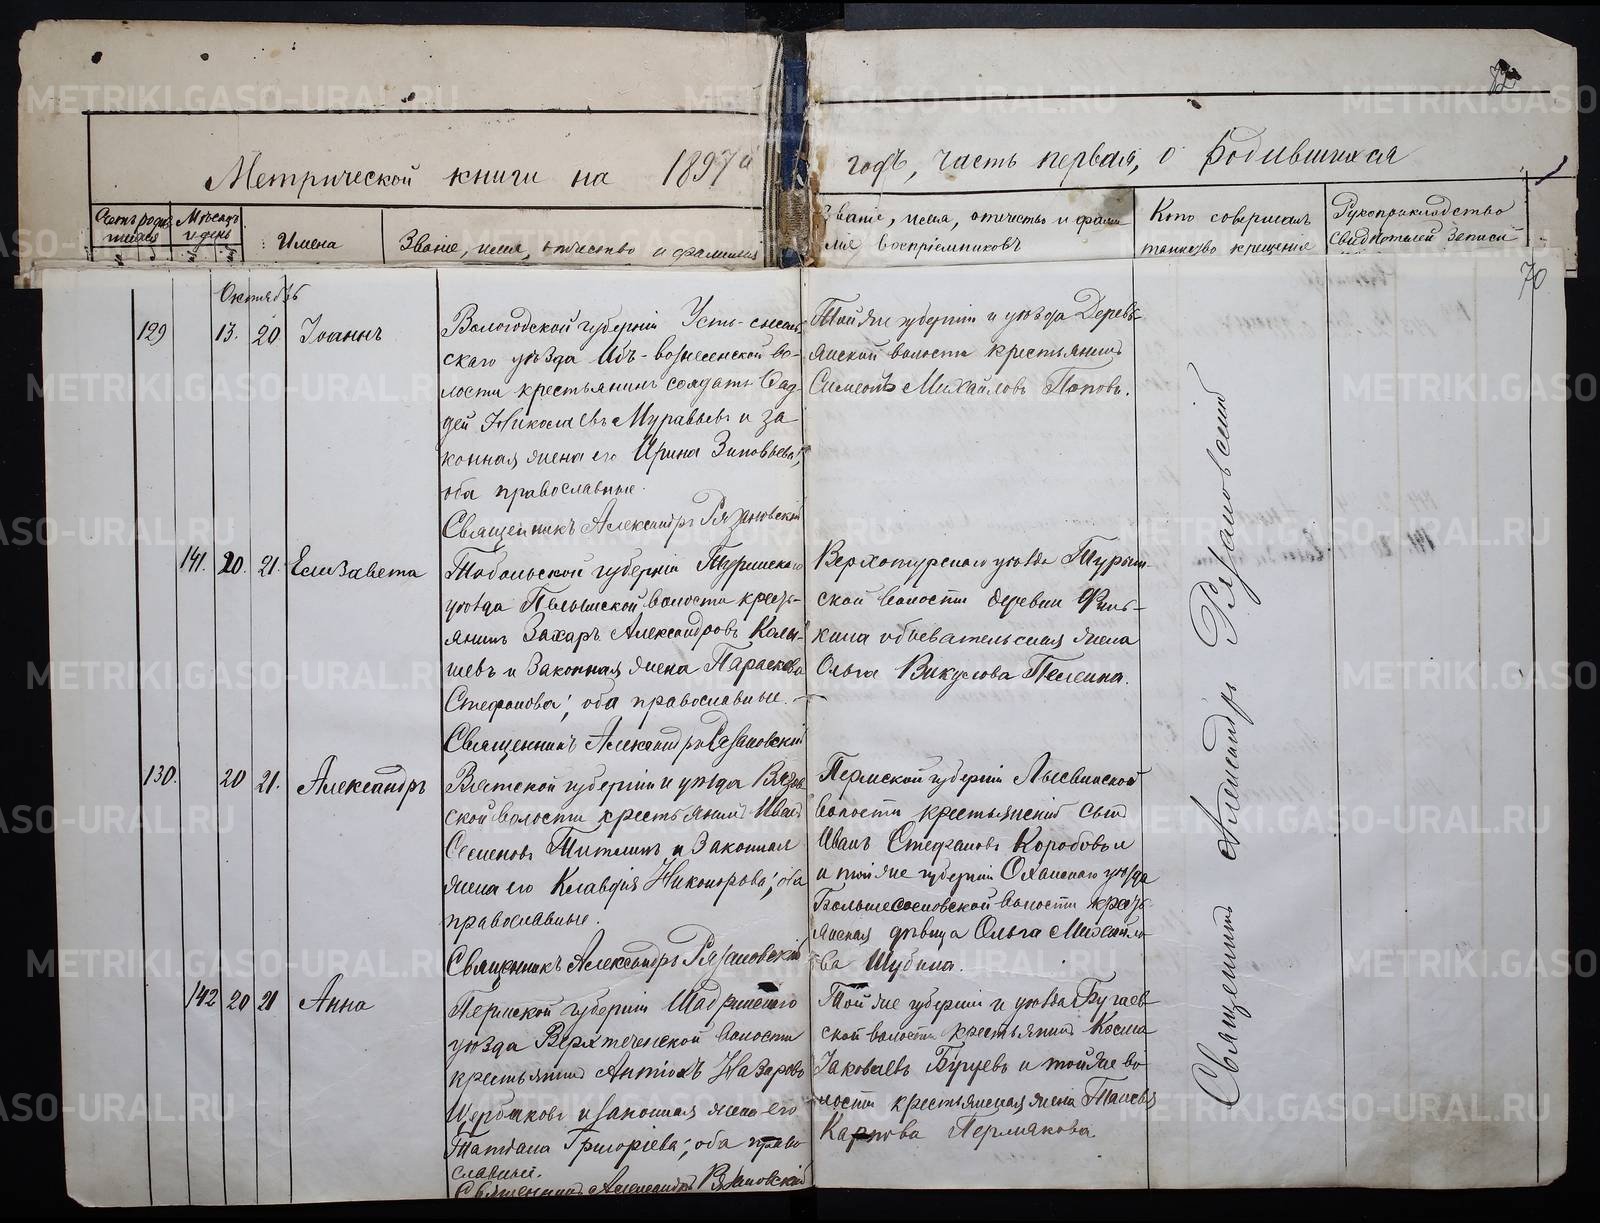 Метрической книги на 1897й
годъ, часть первая, о родившихся
Счетъ родившихся
Мѣсяцъ и день
Имена
Званіе, имя, отчество и фамилія
Званіе, имя, отчество и фами
лія воспріемниковъ
Кто совершалъ
таинство крещенія
Рукоприкладство
свидѣтелей записи
70
Октябрь
129 13. 20 Іоаннъ
Вологодской губерніи Усть-сысоль
скаго уѣзда Иб-вознесенской во-
лости крестьянинъ солдатъ Фад
дей Николаевъ Муравьевъ и за
конная жена его Ирина Зиновьева,
оба православные.
Священникъ Александръ Рязановскій
Той же губерніи и уѣзда Деревъ
янской волости крестьянинъ
Симеонъ Михайловъ Поповъ.
141. 20. 21. Елизавета
Тобольской губерніи Туринскаго
уѣзда Пелымской волости кресть-
янинъ Захаръ Александровъ
и законная жена Параскева
Стефанова, оба православные.
Священникъ Александръ Рязановскій
Верхотурскаго уѣзда Турин-
ской волости деревни Филь-
кина обывательская жена
Ольга Викулова
130. 20 21. Александръ
Вятской губерніи и уѣзда
ской волости крестьянинъ Иванъ
Семеновъ и законная
жена его Клавдія Никонорова, оба
православные.
Священникъ Александръ Рязановскій
Пермской губерніи Лысвинской
волости крестьянскій сынъ
Иванъ Стефановъ Коробовъ и
и той же губерніи Оханскаго уѣзда
Большесосновской волости кресть
янская дѣвица Ольга Михайло
ва Шубина.
142 20 21 Анна
Пермской губерніи Шадринскаго
уѣзда Верхтеченской волости
крестьянинъ Антіохъ Назаровъ
Щербаковъ и законная жена его
Татіана Григоріева, оба право
славные.
Священникъ Александръ Рязановскій
Той же губерніи и уѣзда Бугаев
ской волости крестьянинъ Косма
Іаковлевъ и той же во
лости крестьянская жена Таисья
Карпова Пермякова.
Священникъ Александръ Рязановскій
METRIKI.GASO-URAL.RU